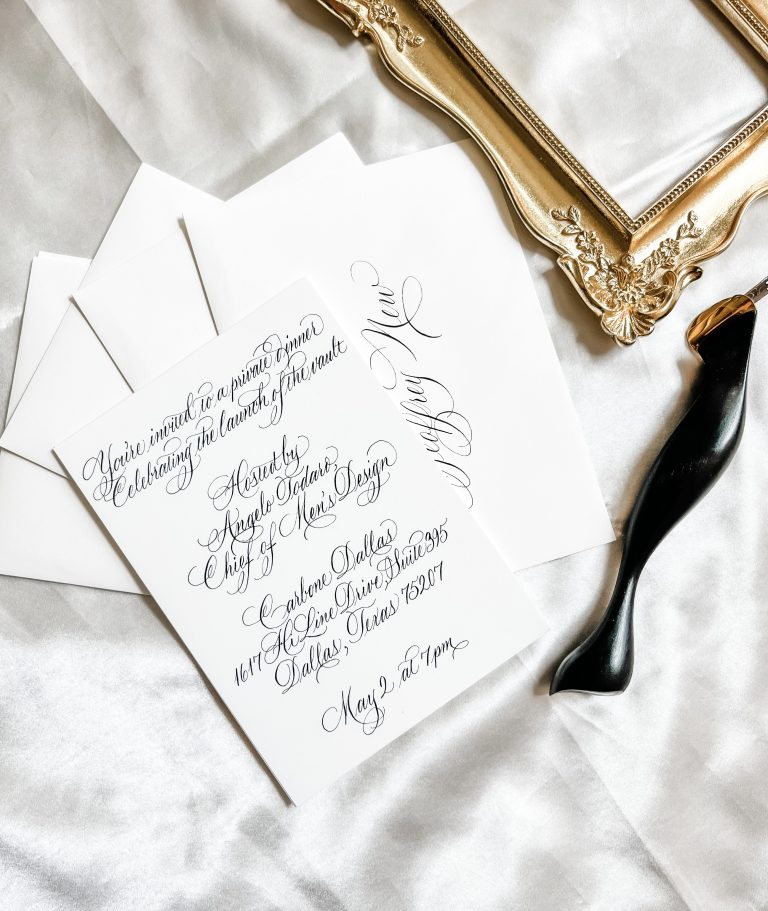 You're invited to a private dinner
Celebrating the launch of the vault
Hosted by
Angelo Todaro
Chief of Men's Design
Carbone Dallas
1617 Hi Line Drive, Suite 395
Dallas, Texas 75207
May 2 at 7pm
Geoffrey New